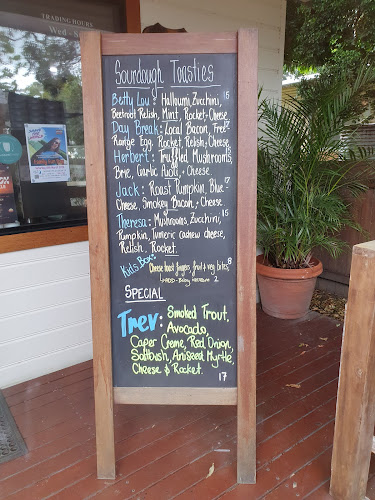 TRADING HOURS
Sourdough Toasties
Betty Lou: Halloumi, Zucchini, 15
Beetroot Relish, Mint, Rocket, Cheese
Day Break: Local Bacon, Free-
Range Egg, Rocket, Relish, Cheese
Herbert: Truffled Mushrooms,
Brie, Garlic Aioli, Cheese
Jack: Roast Pumpkin, Blue
Cheese, Smokey Bacon, Cheese
Theresa: Mushrooms, Zucchini, 15
Pumpkin, Tumeric cashew cheese,
Relish, Rocket.
Kids Box: 8
Cheese toast fingers, fruit + veg bites,
SPECIAL
Trev: Smoked Trout,
Avocado,
Caper Creme, Red Onion,
Saltbush, Aniseed Myrtle,
Cheese & Rocket.
17